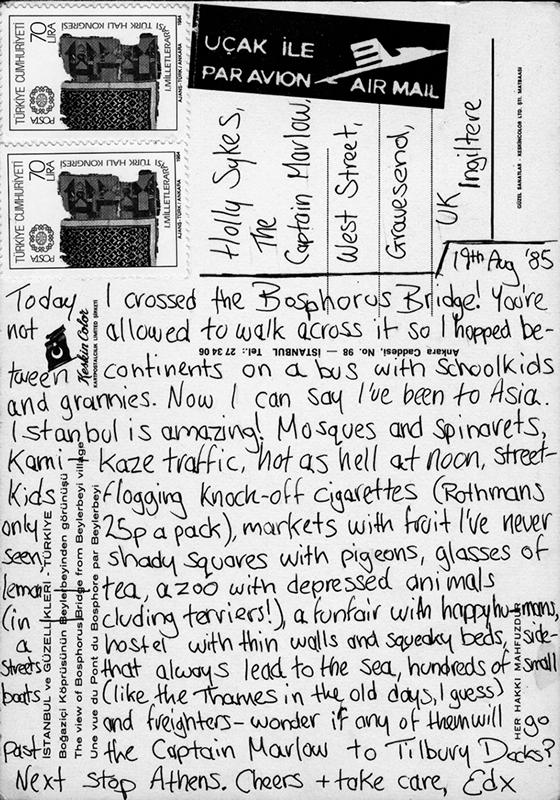 TÜRKİYE CUMHURİYETİ
70
LİRA
POSTA
I.MİLLETLERARASI
TÜRK HALI KONGRESİ
AJANS-TÜRK/ANKARA
1984
TÜRKİYE CUMHURİYETİ
70
LİRA
POSTA
I.MİLLETLERARASI
TÜRK HALI KONGRESİ
AJANS-TÜRK/ANKARA
1984
UÇAK İLE
PAR AVION
AIR MAIL
Holly Sykes,
The
Captain Marlow,
West Street,
Gravesend,
UK
Ingiltere
GÜZEL SANATLAR - KESKİNCOLOR LTD. ŞTİ. MATBAASI
19th Aug '85
Today I crossed the Bosphorus Bridge! You're
not allowed to walk across it so I hopped be-
tween continents on a bus with schoolkids
and grannies. Now I can say I've been to Asia.
Istanbul is amazing! Mosques and spinarets,
Kami-Kaze traffic, hot as hell at noon, street-
kids flogging knock-off cigarettes (Rothmans
only 25p a pack), markets with fruit I've never
seen, shady squares with pigeons, glasses of
lemon tea, a zoo with depressed animals
(in cluding terriers!), a funfair with happy humans,
a hostel with thin walls and squeaky beds, side-
streets that always lead to the sea, hundreds of small
boats (like the Thames in the old days, I guess)
and freighters - wonder if any of them will go
past the Captain Marlow to Tilbury Docks?
Next stop Athens. Cheers + take care, Edx
Keskin Color
KARTPOSTALCILIK LİMİTED ŞİRKETİ
Ankara Caddesi, No. 98 — İSTANBUL Tel.: 27 34 06
İSTANBUL ve GÜZELLİKLERİ - TÜRKİYE
Boğaziçi Köprüsünün Beylerbeyinden görünüşü
The view of Bosphorus Bridge from Beylerbeyi village
Une vue du Pont du Bosphore par Beylerbeyi
HER HAKKI MAHFUZDUR